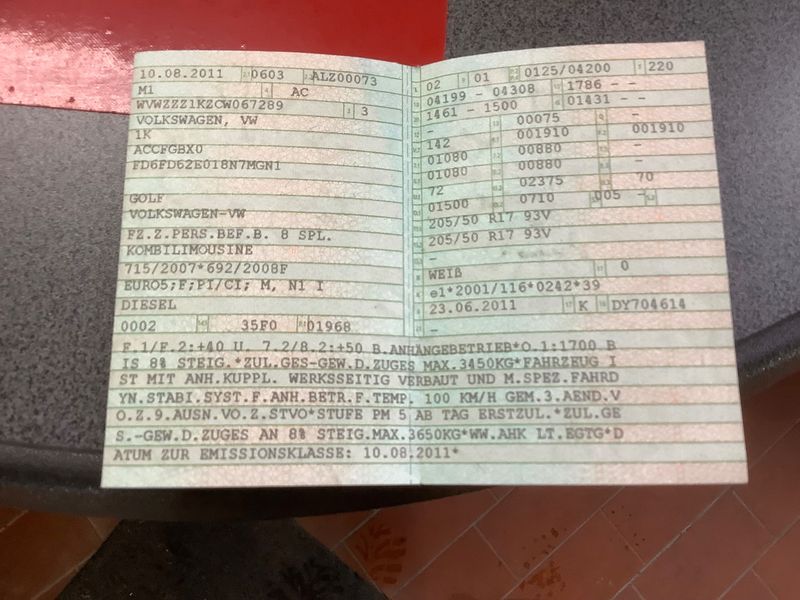 10.08.2011 0603 ALZ00073
M1 AC
WVWZZZ1KZCW067289 3
VOLKSWAGEN, VW
1K
ACCFGBX0
FD6FD62E018N7MGN1
GOLF
VOLKSWAGEN-VW
FZ.Z.PERS.BEF.B. 8 SPL.
KOMBILIMOUSINE
715/2007*692/2008F
EURO5;F;PI/CI; M, N1 I
DIESEL
0002 35F0 01968
02 01 0125/04200 220
04199 - 04308 1786 - -
1461 - 1500 01431 - -
- 00075 -
142 001910 001910
01080 00880 -
01080 00880 -
72 02375 70
01500 0710 005 -
205/50 R17 93V
205/50 R17 93V
-
-
WEIß 0
e1*2001/116*0242*39
23.06.2011 K DY704614
-
F.1/F.2:+40 U. 7.2/8.2:+50 B.ANHÄNGEBETRIEB*O.1:1700 B
IS 8% STEIG.*ZUL.GES-GEW.D.ZUGES MAX.3450KG*FAHRZEUG I
ST MIT ANH.KUPPL. WERKSSEITIG VERBAUT UND M.SPEZ.FAHRD
YN.STABI.SYST.F.ANH.BETR.F.TEMP. 100 KM/H GEM.3.AEND.V
O.Z.9.AUSN.VO.Z.STVO*STUFE PM 5 AB TAG ERSTZUL.*ZUL.GE
S.-GEW.D.ZUGES AN 8% STEIG.MAX.3650KG*WW.AHK LT.EGTG*D
ATUM ZUR EMISSIONSKLASSE: 10.08.2011*